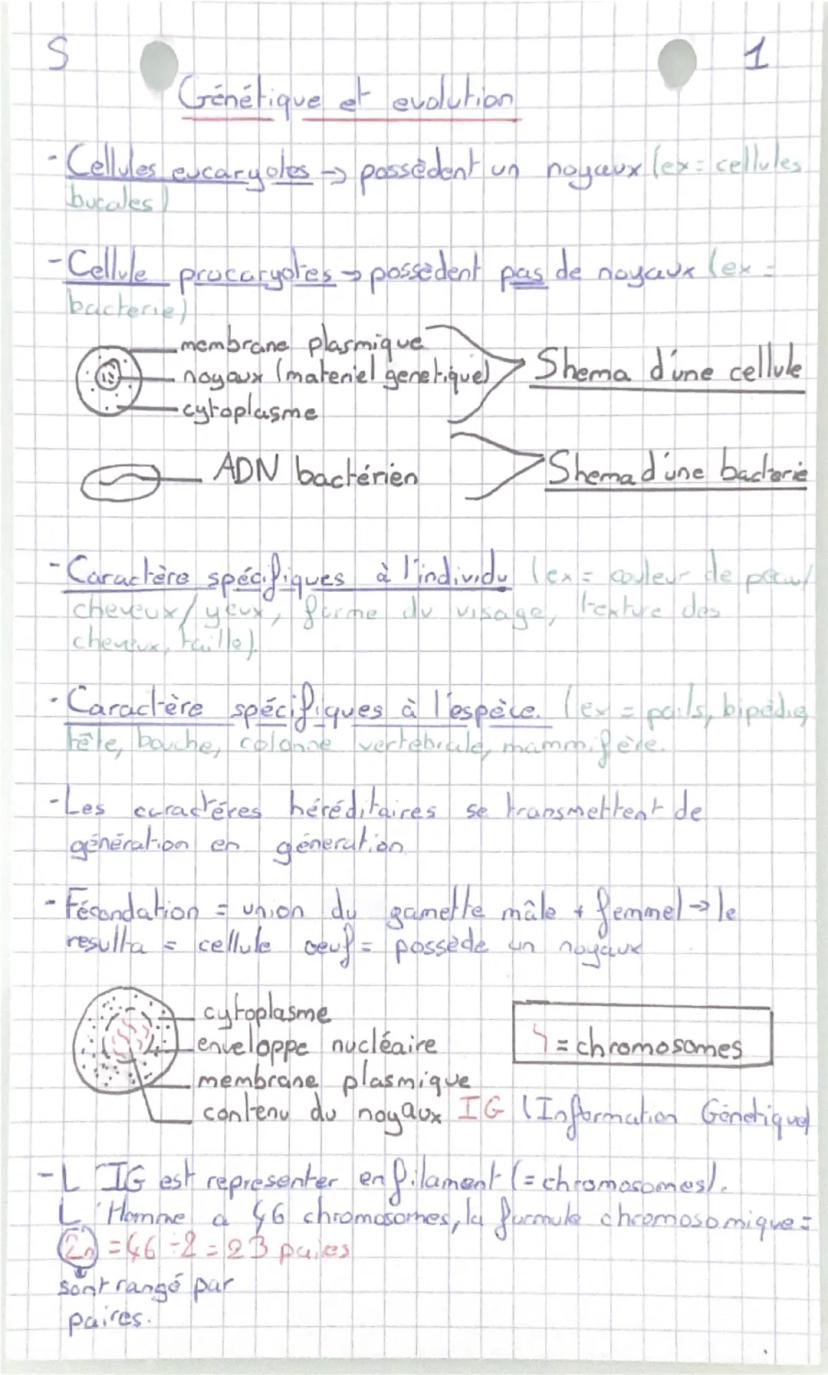 S
1
Génétique et evolution
- Cellules eucaryotes → possèdent un noyaux (ex = cellules
bucales)
- Cellule procaryotes → possèdent pas de noyaux (ex =
bacterie)
membrane plasmique
noyaux (materiel genetique)
cytoplasme
Shema d'une cellule
ADN bactérien
Shema d'une bacterie
- Caractère spécifiques à l'individu (ex = couleur de peau/
cheveux/yeux, forme du visage, texture des
cheveux, taille).
- Caractère spécifiques à l'espèce. (ex = poils, bipédie,
tête, bouche, colonne vertebrale, mammifère.
- Les caractéres héréditaires se transmettent de
génération en géneration
- Fécondation = union du gamette mâle + femmel → le
resulta = cellule oeuf = possède un noyaux
cytoplasme
enveloppe nucléaire
membrane plasmique
contenu du noyaux IG (Information Génetique)
= chromosomes
- L'IG est representer en filament (= chromosomes).
L'Homme a 46 chromosomes, la formule chromosomique =
2n = 46 ÷ 2 = 23 paires
sont rangé par
paires.